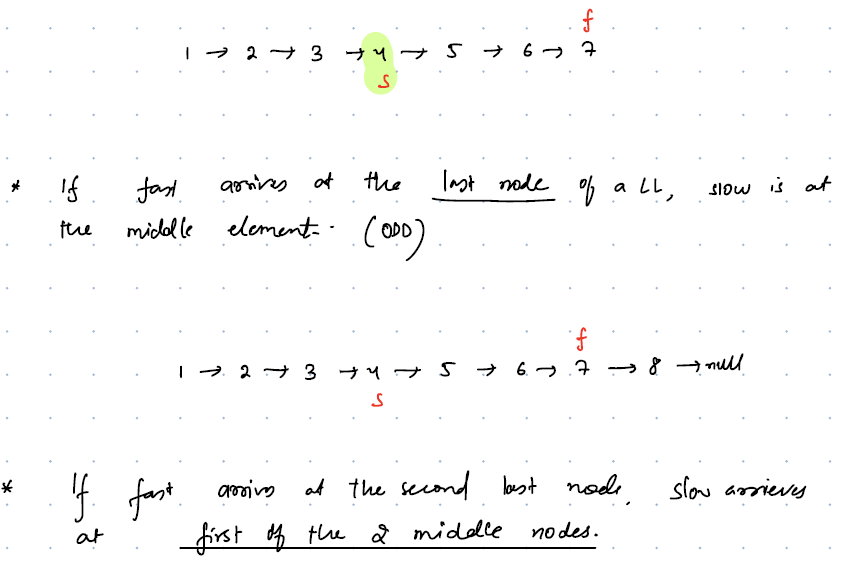 f
1 → 2 → 3 → 4 → 5 → 6 → 7
s
* If fast arrives at the last node of a LL, slow is at
the middle element. (ODD)
f
1 → 2 → 3 → 4 → 5 → 6 → 7 → 8 → null
s
* If fast arrivs at the second last node, slow arrieves
at first of the 2 middle nodes.